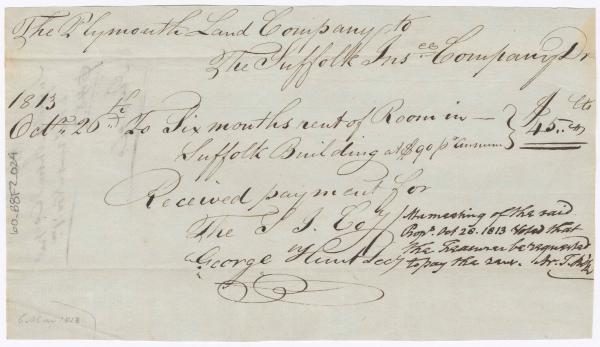 The Plymouth Land Company to
The Suffolk Ins.ce Company Dr
1813
Octr. 26th To Six months rent of Room in — $ cts
Suffolk Building at $90 pr Annum } 45..
Received payment for
The S I Coy
George Hunt Secy
At a meeting of the said
Propr. Oct 20. 1813 Voted that
the Treasurer be requested
to pay the same.
60-B8F2-004